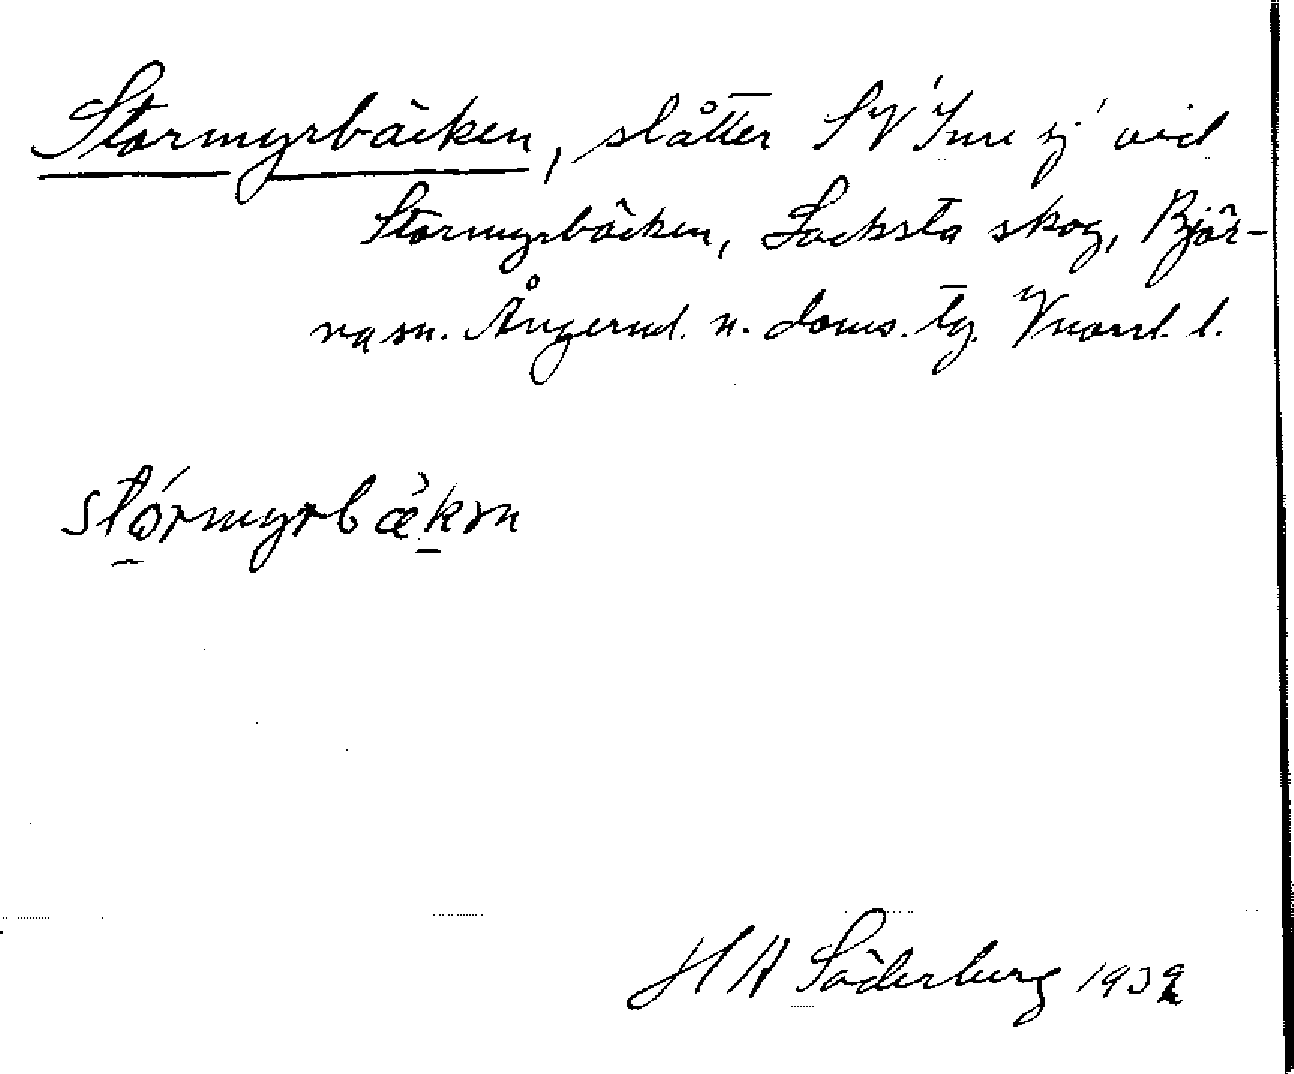 Stormyrbäcken, slåtter SV 'Inre sj' vid
Stormyrbäcken, Locksta skog, Björ-
na sn. Ångerml. n. doms. tg. Vnorrl. l.
stórmyrbæ̀kɳ
H A Söderberg 193